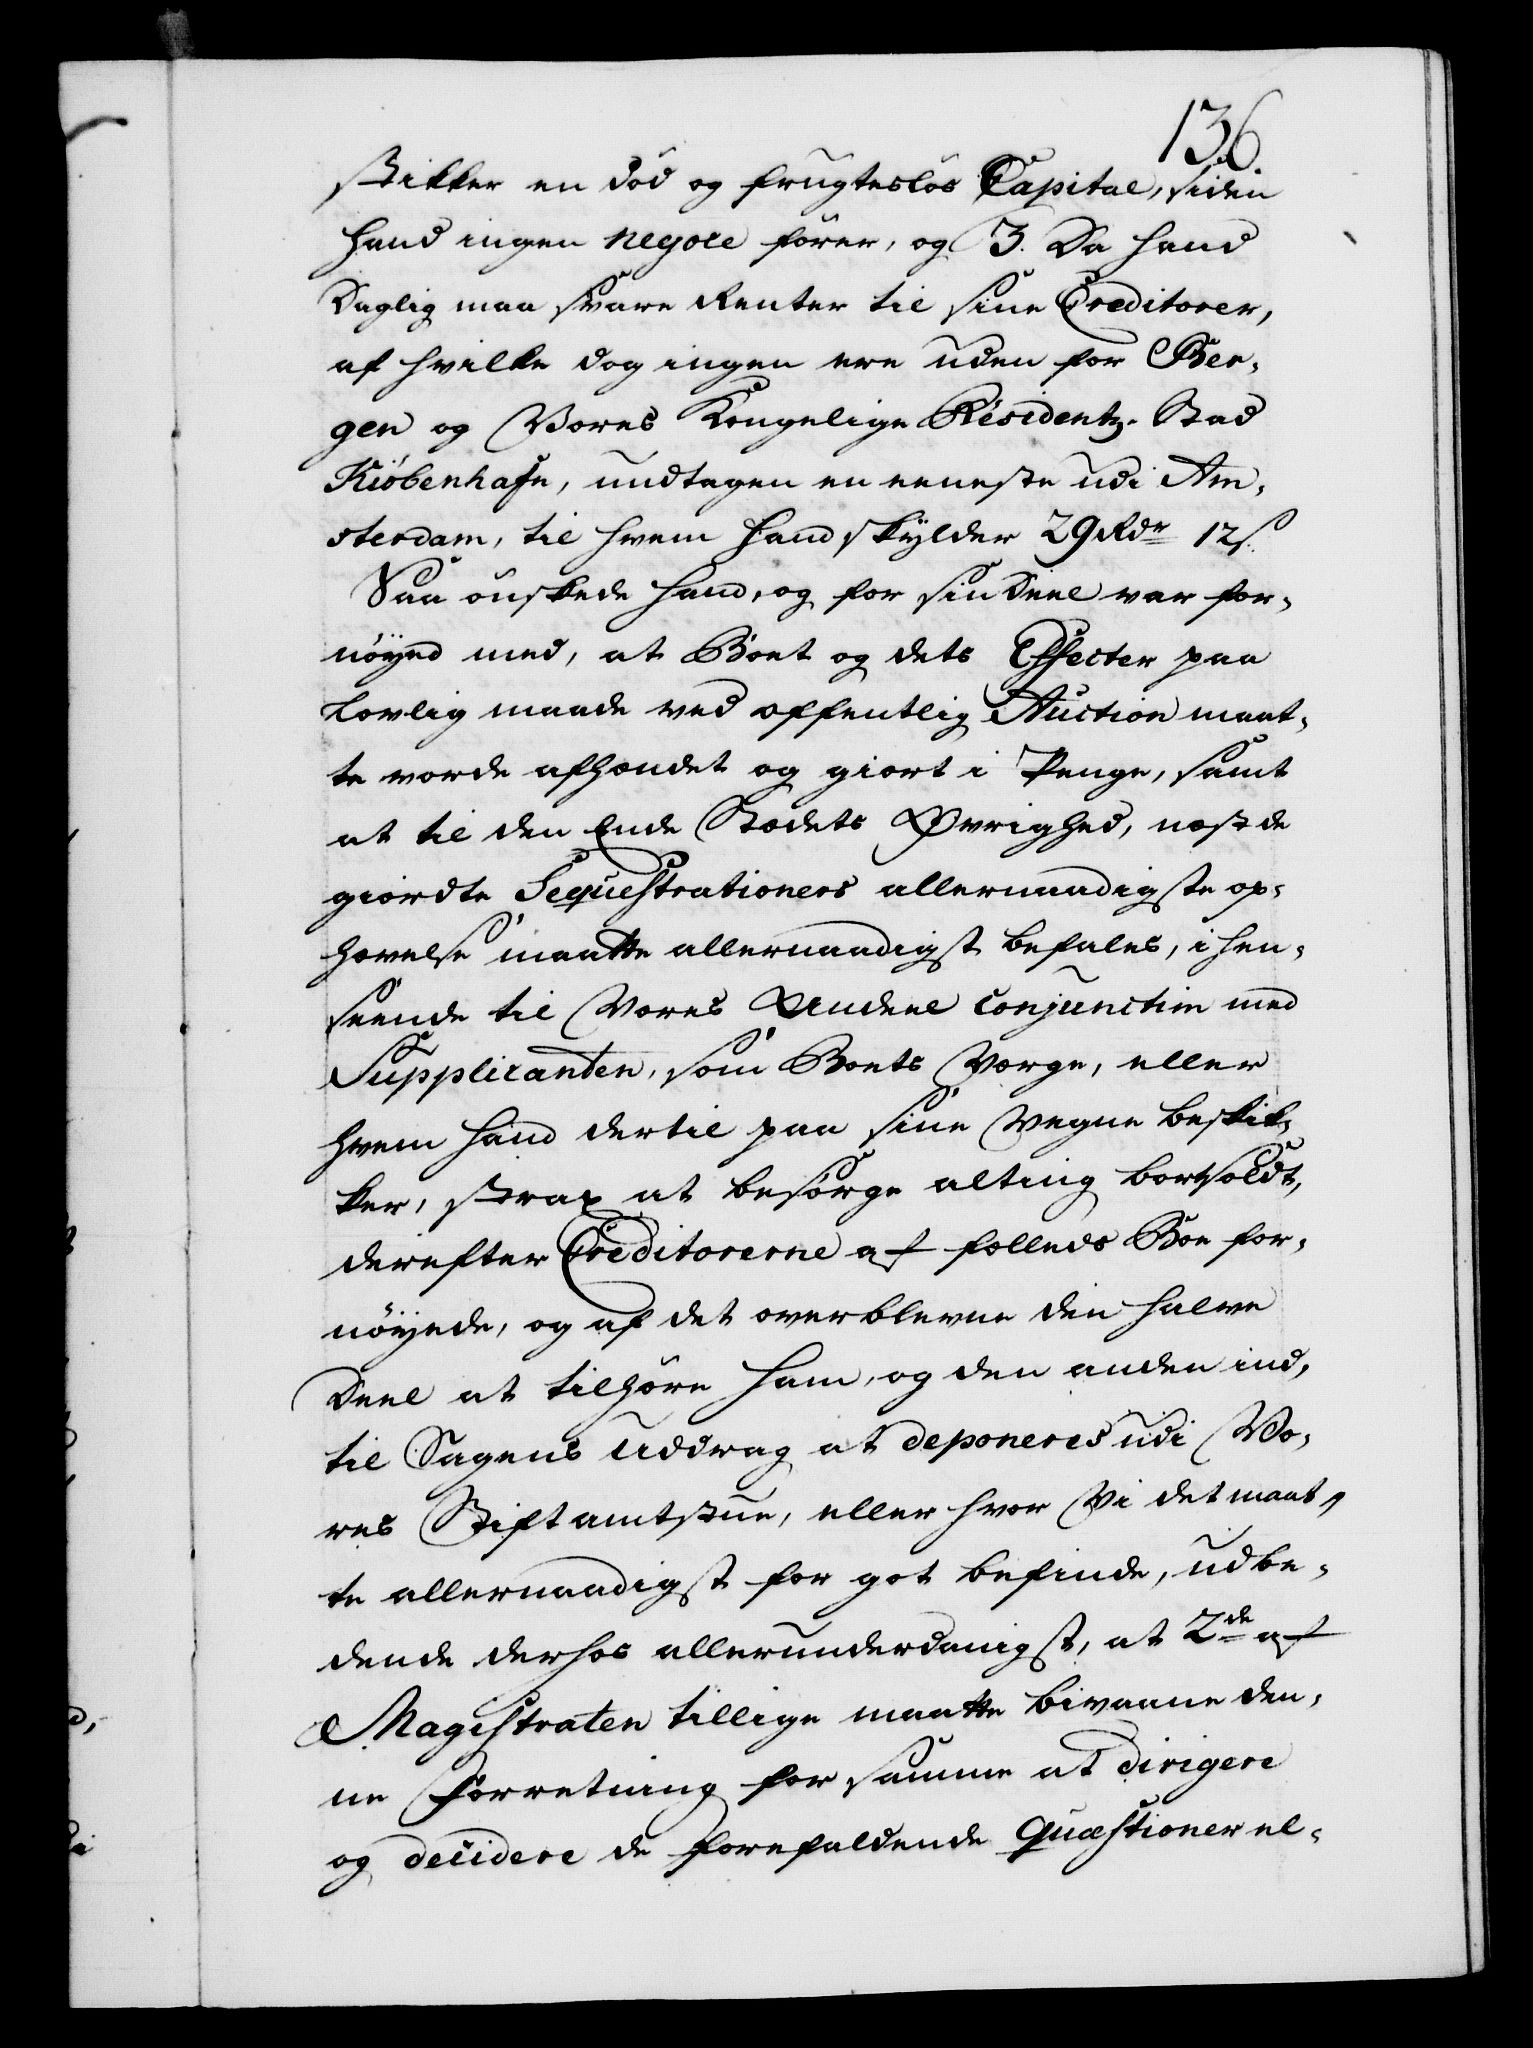 136.
stikker en död og frugteslös Capital, siden
hand ingen negoce fører, og 3. Da hand
Daglig maa svare Renter til sine Creditorer,
af hvilke dog ingen ere uden for Ber-
gen og Vores Kongelige Residentz-Stad
Kiöbenhafn, undtagen en eeneste udi Am-
sterdam, til hvem hand skylder 29 Rdr 12 s.
Saa ønskede hand, og for sin Deel var for-
nöyed med, at Boet og dets Effecter paa
lovlig maade ved offentlig Auction maat-
te vorde afhændet og giort i Penge, samt
at til den Ende Stædets Øvrighed, næst de
giordte Sequestrationers allernaadigste op-
hævelse maatte allernaadigst befales, i hen-
seende til Vores Andeel conjunctim med
Supplicanten, som Boets Værge, eller
hvem hand dertil paa sine Vegne beskik-
ker, strax at besørge alting bortsoldt,
derefter Creditorerne af fælleds Boe for-
nöyede, og af det overblevne den halve
Deel at tilhøre ham, og den anden ind-
til Sagens Uddrag at deponeres udi Vo-
res Stiftamtstue, eller hvor Vi det maat-
te allernaadigst for got befinde, udbe-
dende derhos allerunderdanigst, at 2de af
Magistraten tillige maatte bivaane den-
ne Forretning for samme at dirigere
og decidere de forefaldende Quæstioner el-